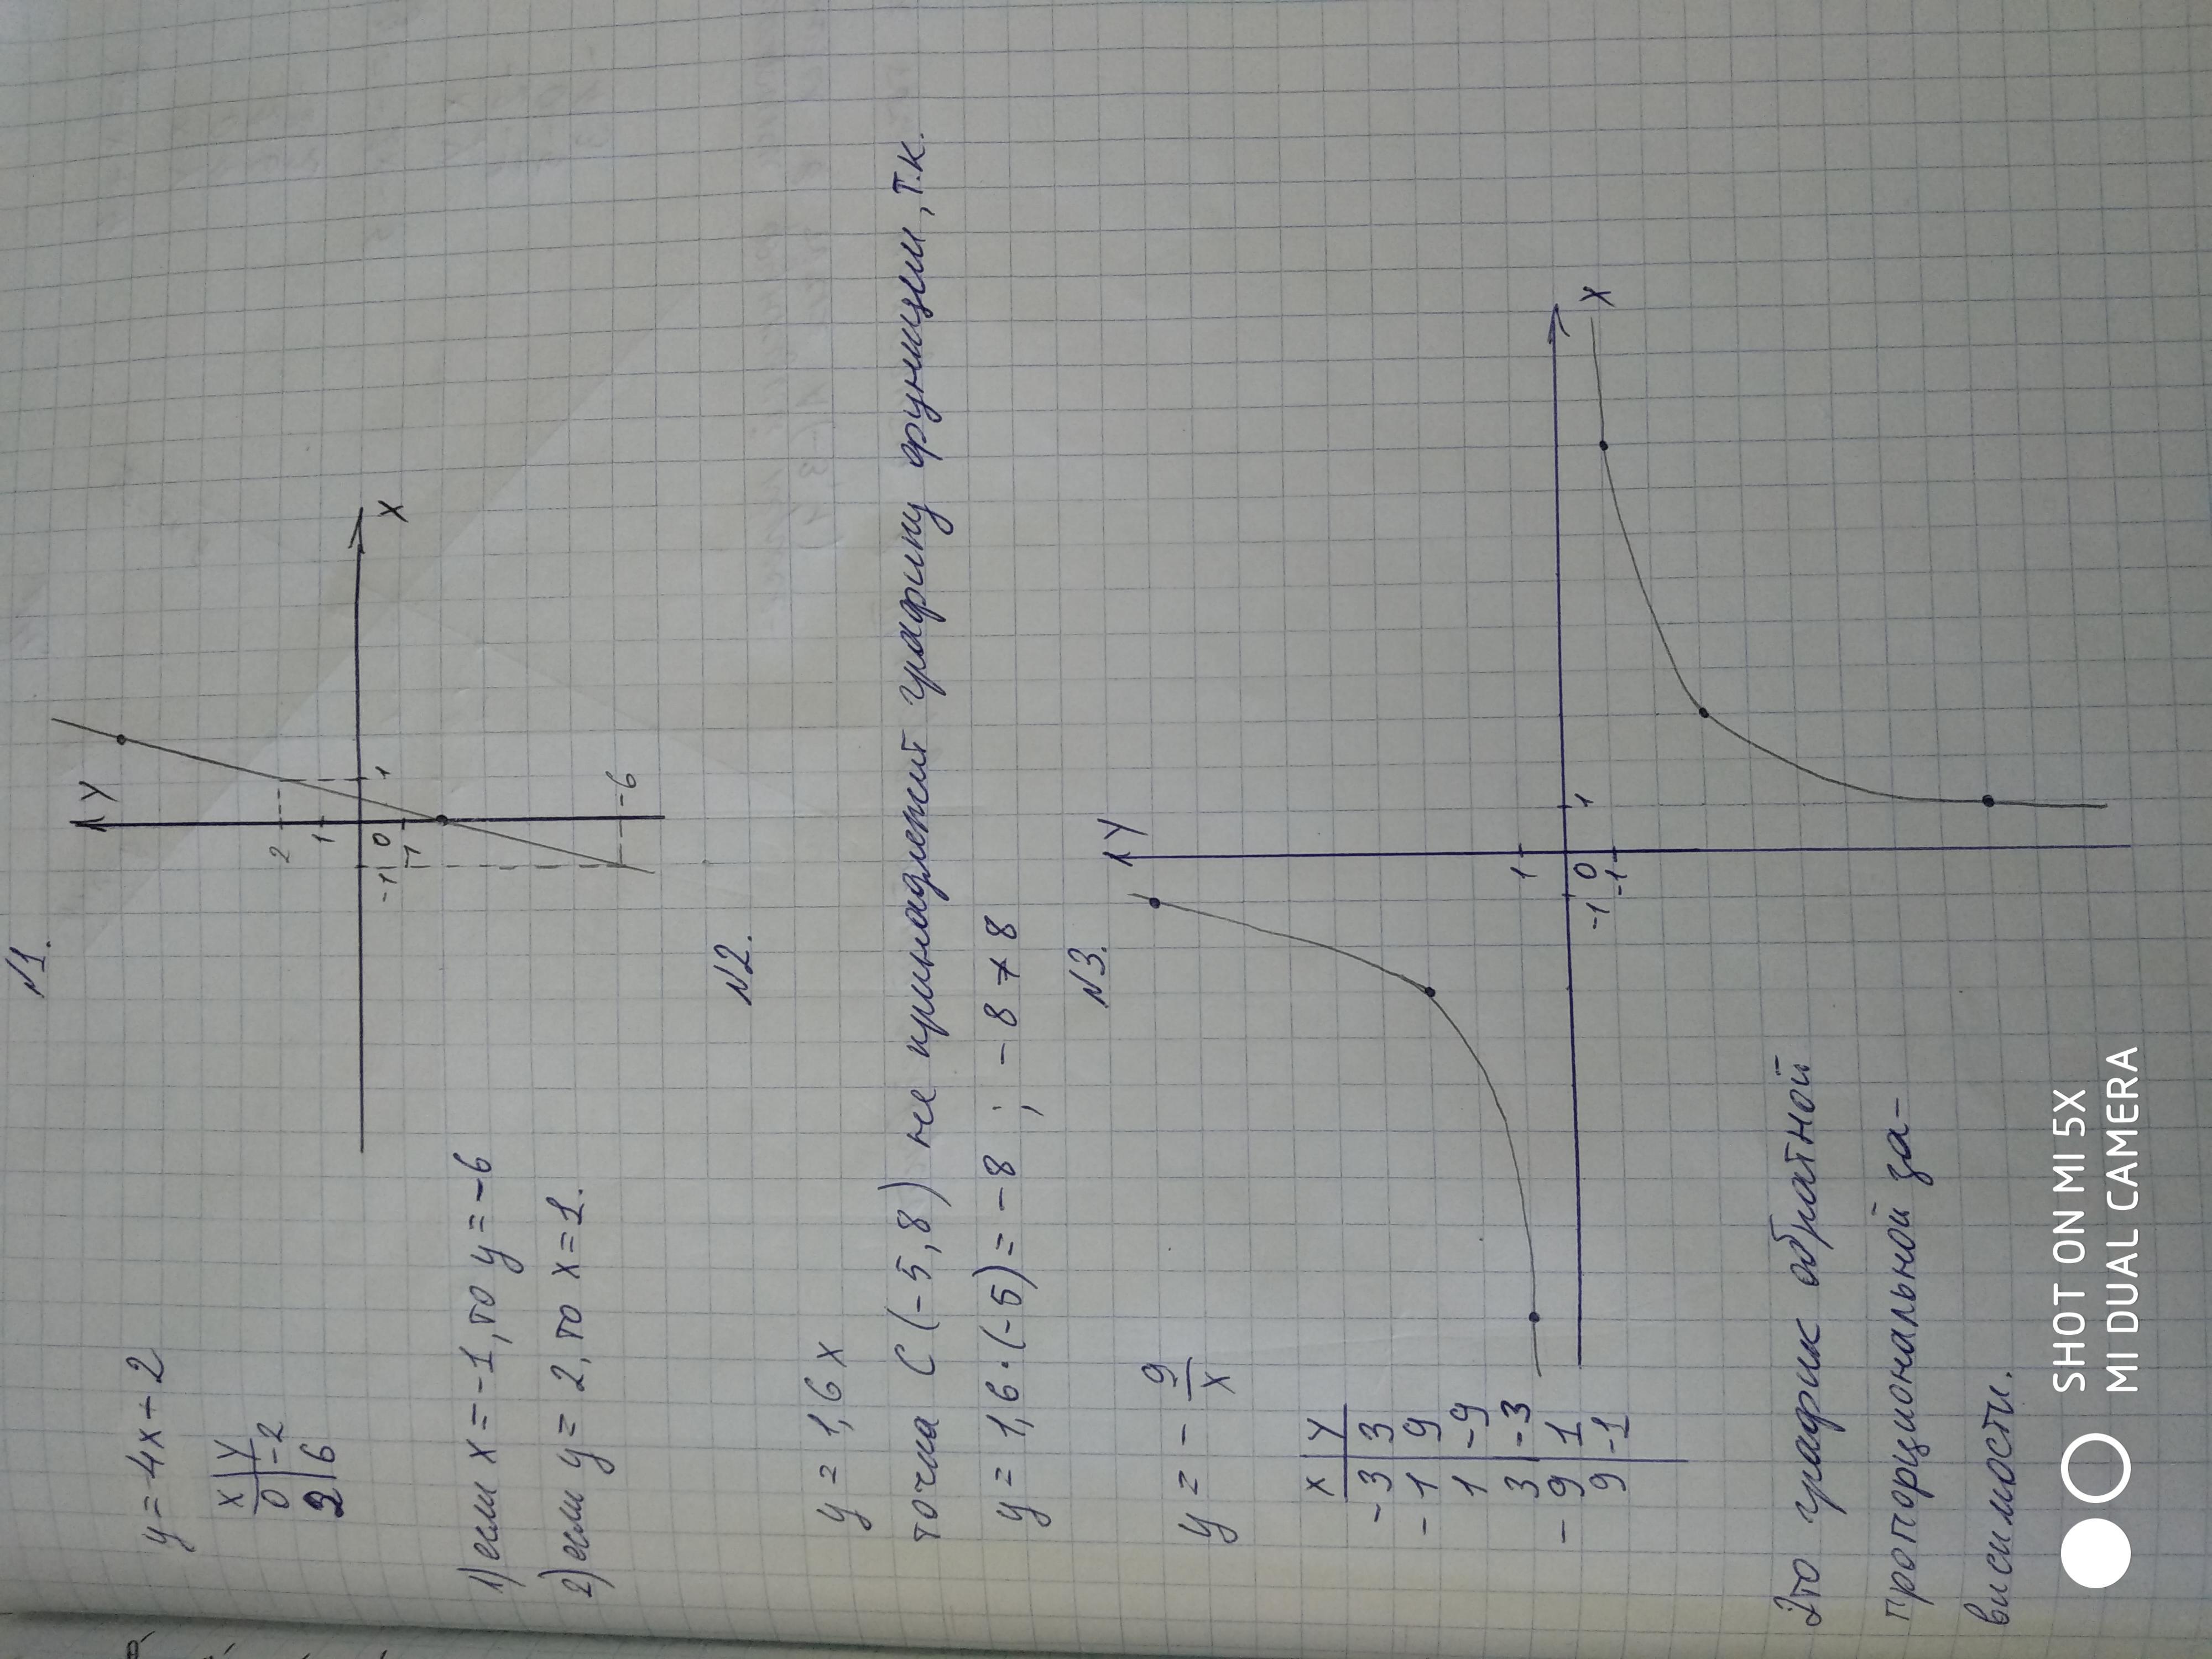 №1.
y = 4x - 2
x | y
0 | -2
2 | 6
Y
2
1
0
-1
-1
1
X
-6
1) если x = -1, то y = -6
2) если y = 2, то x = 1.
№2.
y = 1,6x
точка C (-5, 8) не принадлежит графику функции, т.к.
y = 1,6 · (-5) = -8 ; -8 ≠ 8
№3.
y = - 9/x
x | y
-3 | 3
-1 | 9
1 | -9
3 | -3
-9 | 1
9 | -1
Y
1
0
-1
-1
1
X
Это график обратной
пропорциональной за-
висимости.
SHOT ON MI 5X
MI DUAL CAMERA